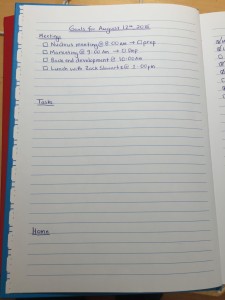 Goals for August 12th 2016
Meetings
□ Nucleus meeting @ 8:00 am → □ prep
□ Marketing @ 9:00 am → □ prep
□ development @ 10:00 am
□ Lunch with Zach @ 1:00 pm
Tasks
Home